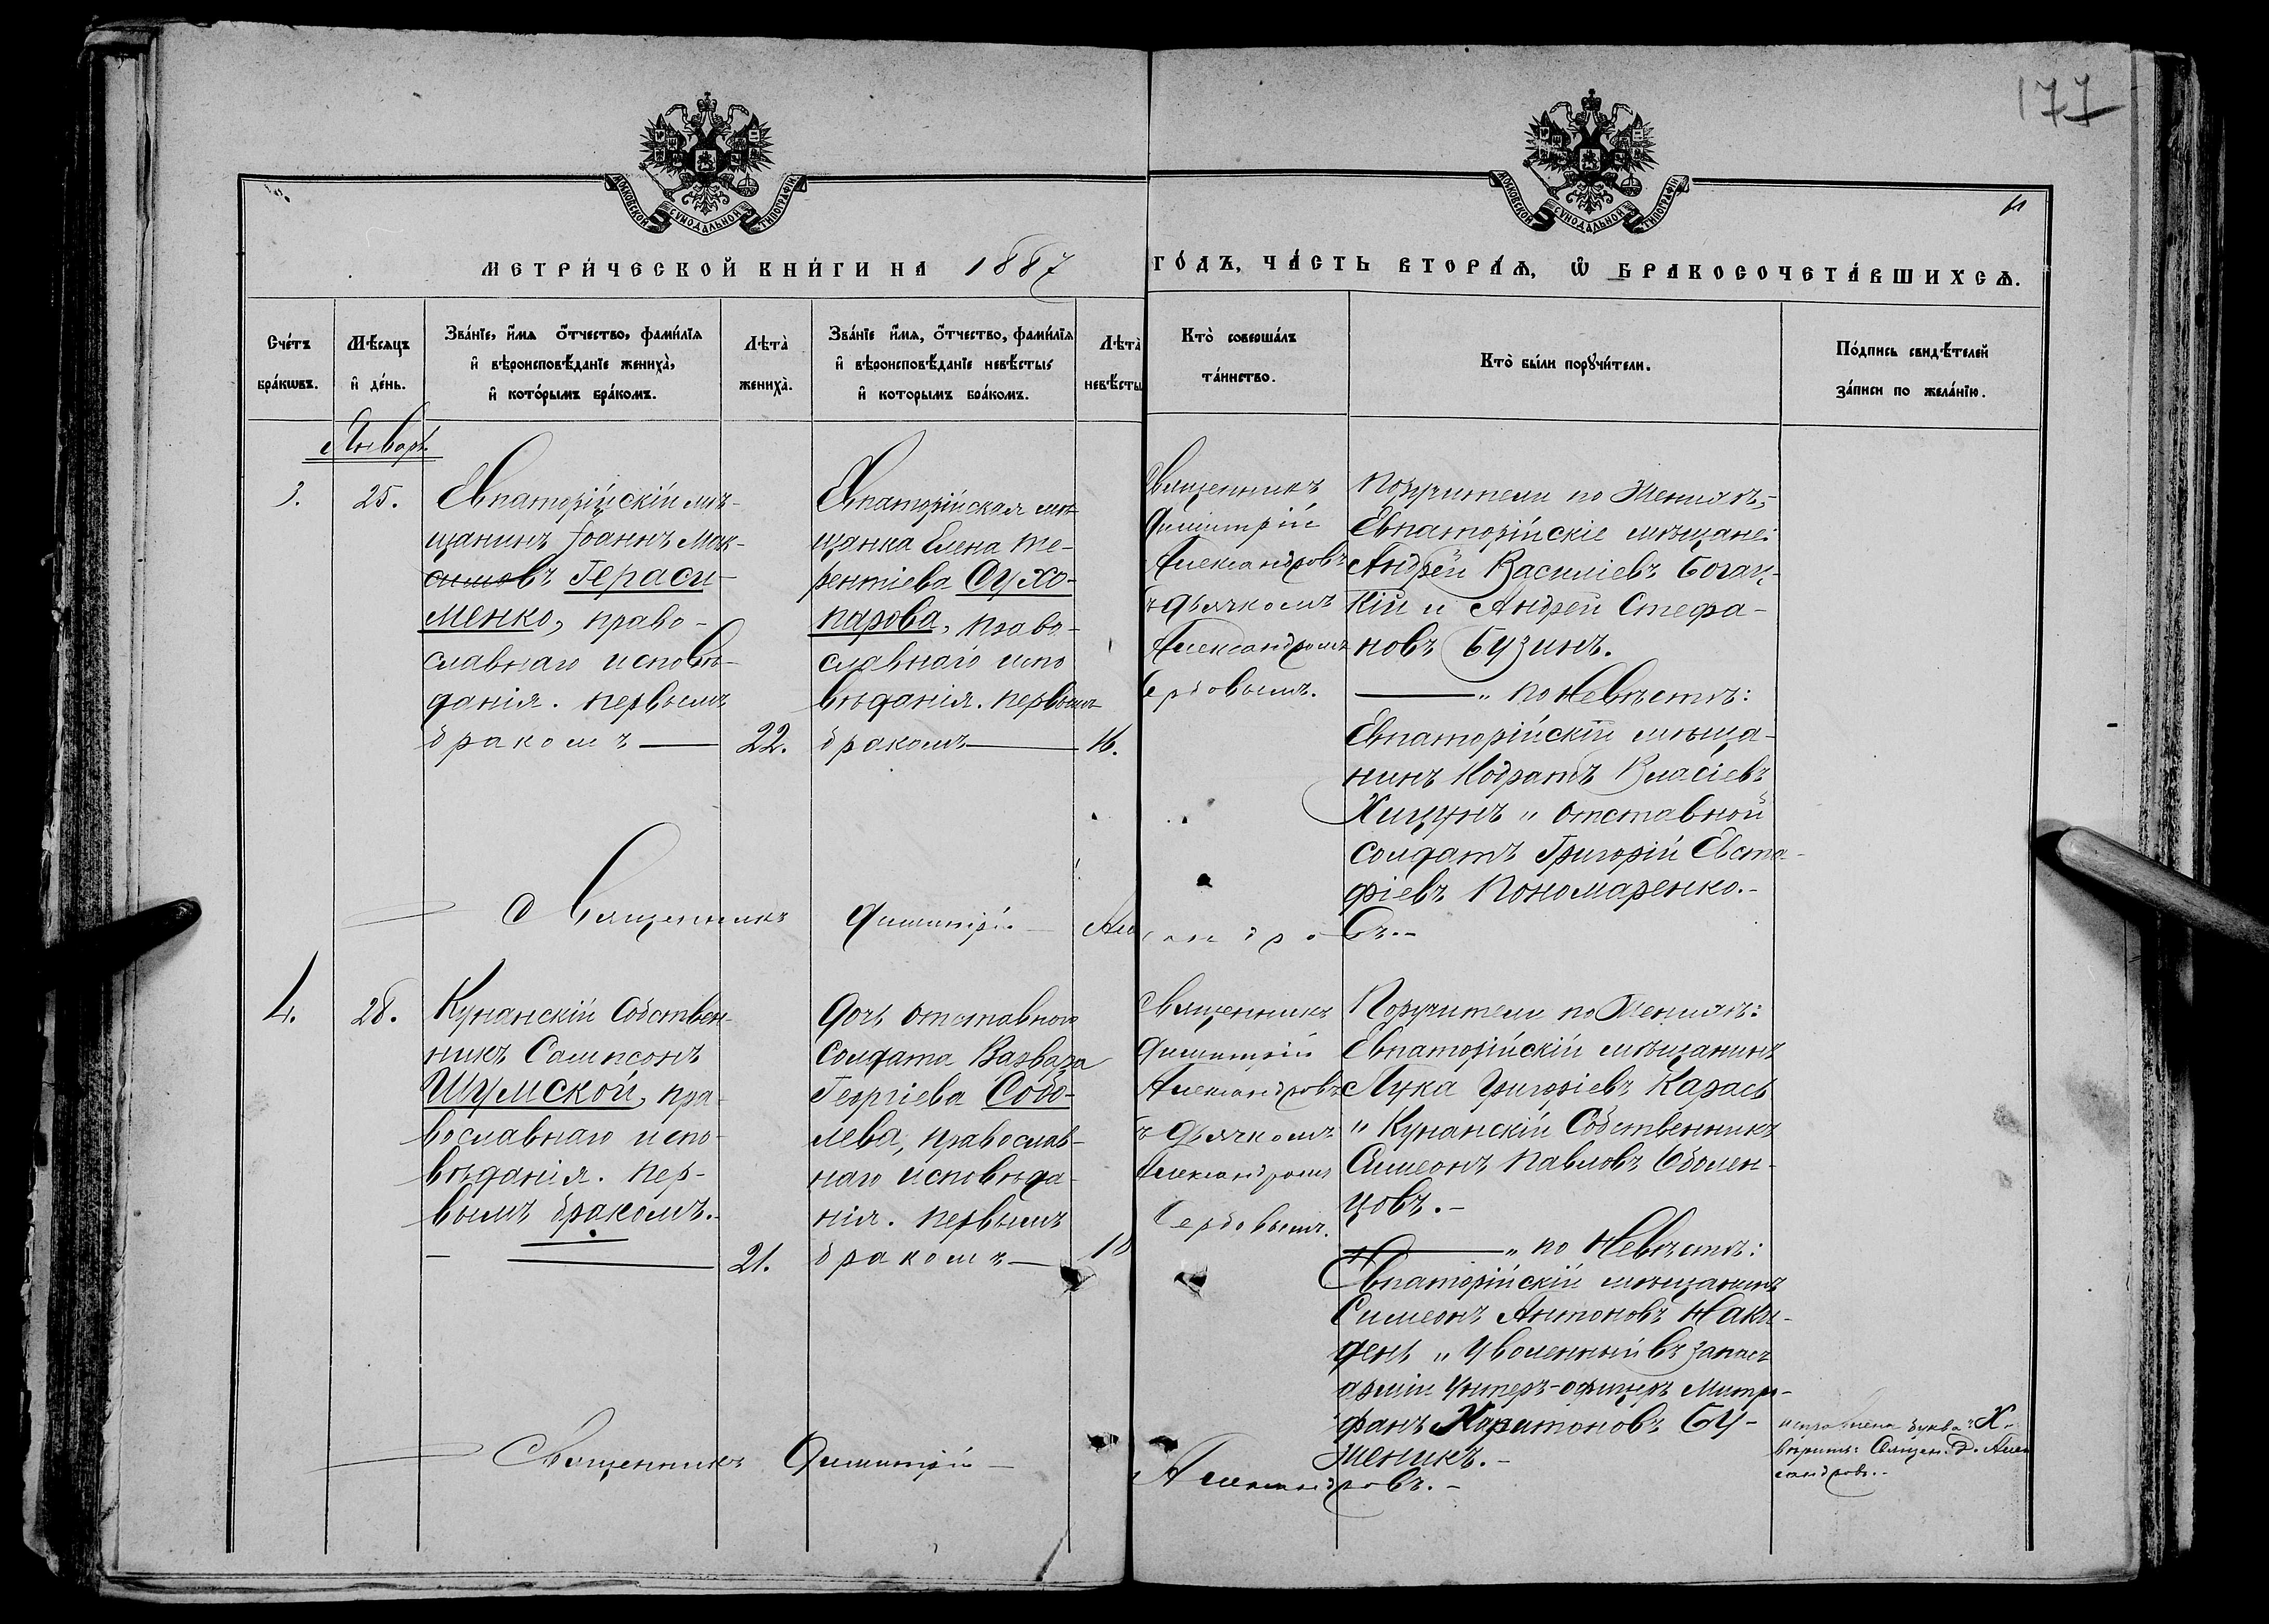 177
МОСКОВСКОЙ СУНОДАЛЬНОЙ ТИПОГРАФІИ
МОСКОВСКОЙ СУНОДАЛЬНОЙ ТИПОГРАФІИ
МЕТРИ́ЧЕСКОЙ КНИ́ГИ НА 1887 ГО́ДЪ, ЧА́СТЬ ВТОРА́Ѧ, Ѡ҆ БРАКОСОЧЕТА́ВШИХСѦ.
Сче́тъ бра́кѡвъ.
Мѣ́сяцъ и҆ де́нь.
Зва́нїе, и҆́мѧ ѻ҆́тчество, фами́лїѧ
и҆ вѣроисповѣ́данїе жениха̀,
и҆ кото́рымъ бра́комъ.
Лѣта̀ жениха̀.
Зва́нїе и҆́мѧ, ѻ҆́тчество, фами́лїѧ
и҆ вѣроисповѣ́данїе невѣ́сты,
и҆ которымъ бра́комъ.
Лѣта̀ невѣ́сты
Кто̀ соверша́лъ
та́инство.
Кто̀ бы́ли порꙋчи́тели.
По́дпись свидѣ́телей
за́писи по жела́нїю.
Январь
3.
25.
Евпаторійскій мѣ-
щанинъ Іоаннъ Мак-
симовъ Гераси-
менко, право-
славнаго исповѣ-
данія. первымъ
бракомъ
22.
Евпаторійская мѣ-
щанка Елена Те-
рентіева Сухо-
парова, право-
славнаго испо
вѣданія. первымъ
бракомъ
16.
Священникъ
Димитрій
Александровъ
съ дьячкомъ
Александромъ
Сербовымъ.
Поручители по Женихѣ:
Евпаторійскіе мѣщане:
Андрей Василіевъ Богац-
кій и Андрей Стефа-
новъ Бузинъ.
" по Невѣстѣ:
Евпаторійскій мѣща-
нинъ Кодратъ Власіевъ
Хицунъ и отставной
солдатъ Григорій Евста-
фіевъ Пономаренко.-
Священникъ Димитрій Александровъ.-
4.
28.
Кунанскій Собствен-
никъ Сампсонъ
Шумской, пра-
вославнаго испо-
вѣданія. Пер-
вымъ бракомъ.-
21.
Дочь отставного
солдата Варвара
Георгіева Собо-
лева, православ-
наго исповѣда-
нія. первымъ
бракомъ
18
Священникъ
Димитрій
Александровъ
съ дьячкомъ
Александромъ
Сербовымъ.
Поручители по Женихѣ:
Евпаторійскій мѣщанинъ
Лука Григоріевъ Карась
и Кунанскій Собственникъ
Симеонъ Павловъ Оболен-
цовъ.-
" по Невѣстѣ:
Евпаторійскій мѣщанинъ
Симеонъ Антоновъ
и Уволенный въ запасъ
арміи Унтеръ-офицеръ Митро-
фанъ Харитоновъ Бу-
женикъ.-
исправлена буква "Х"
вѣрить: Священ. Д. Алек
сандровъ.-
Священникъ Димитрій - Александровъ.-